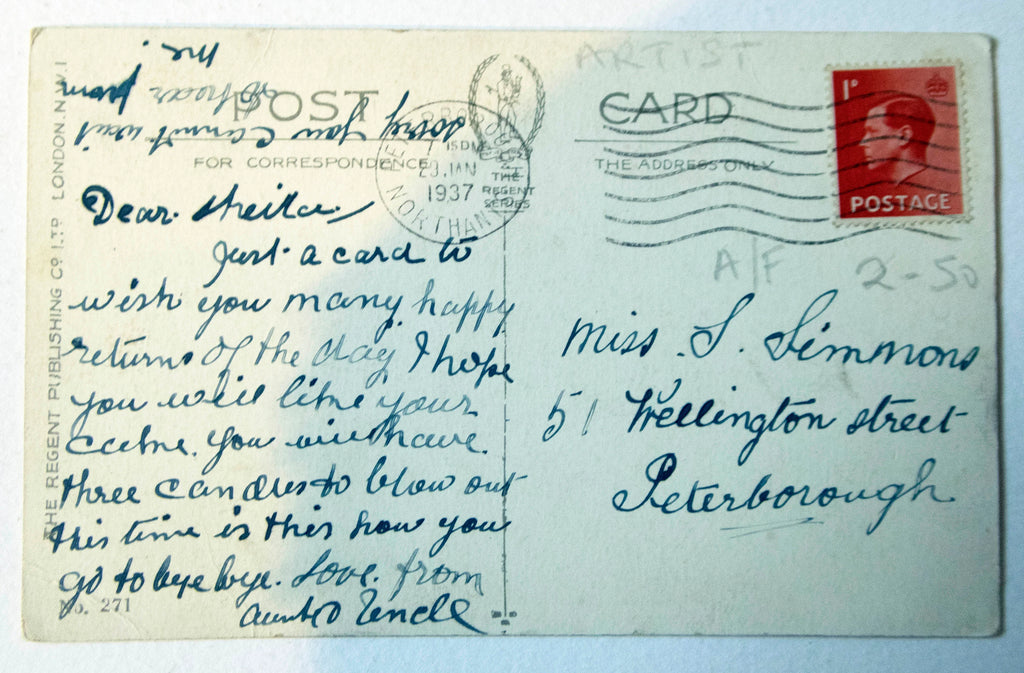 ARTIST
POST CARD
FOR CORRESPONDENCE
THE ADDRESS ONLY
THE REGENT PUBLISHING Cº LTD LONDON. N.W.1
THE
REGENT
SERIES
15 PM
JAN
1937
NORTHANTS
1º
POSTAGE
A/F
2-50
Dear Sheila
Just a card to
wish you many happy
returns of the day I hope
you will like your
cake. you will have
three candles to blow out
this time is this how you
go to bye bye. Love. from
Aunt & Uncle
No. 271
sorry you cannot
to hear from
me.
Miss. S. Simmons
51 Wellington street
Peterborough